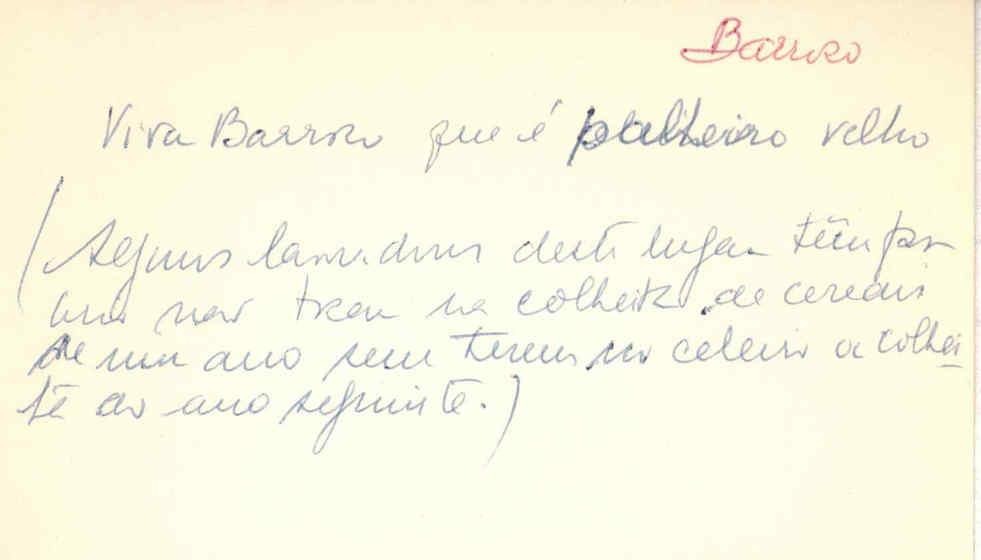 Barroso
Viva Barroso que é palheiro velho
(Alguns lavradores deste lugar têm por
uso não tocar na colheita de cereais
de um ano sem terem no celeiro a colhei-
ta do ano seguinte.)